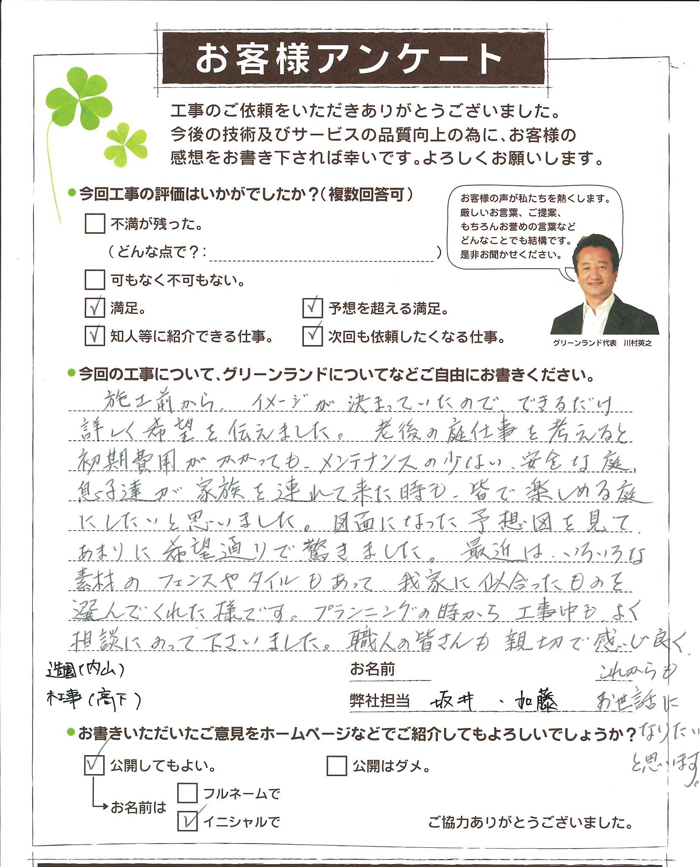 お客様アンケート
工事のご依頼をいただきありがとうございました。
今後の技術及びサービスの品質向上の為に、お客様の
感想をお書き下されば幸いです。よろしくお願いします。
●今回工事の評価はいかがでしたか？（複数回答可）
不満が残った。
（どんな点で？：　）
可もなく不可もない。
満足。
予想を超える満足。
知人等に紹介できる仕事。
次回も依頼したくなる仕事。
お客様の声が私たちを熱くします。
厳しいお言葉、ご提案、
もちろんお誉めの言葉など
どんなことでも結構です。
是非お聞かせください。
グリーンランド代表　川村英之
●今回の工事について、グリーンランドについてなどご自由にお書きください。
施工前から、イメージが決まっていたので、できるだけ
詳しく希望を伝えました。老後の庭仕事を考えると
初期費用がかかっても、メンテナンスの少ない、安全な庭、
息子達が家族を連れて来た時も、皆で楽しめる庭
にしたいと思いました。図面になった予想図を見て、
あまりに希望通りで驚きました。最近は、いろいろな
素材のフェンスやタイルもあって、我家に似合ったものを
選んでくれた様です。プランニングの時から工事中もよく
相談にのって下さいました。職人の皆さんも親切で感じ良く、
これからも
お世話に
なりたい
と思います。
造園（内山）
木工事（高下）
お名前
弊社担当　坂井・加藤
●お書きいただいたご意見をホームページなどでご紹介してもよろしいでしょうか？
公開してもよい。
公開はダメ。
お名前は
フルネームで
イニシャルで
ご協力ありがとうございました。